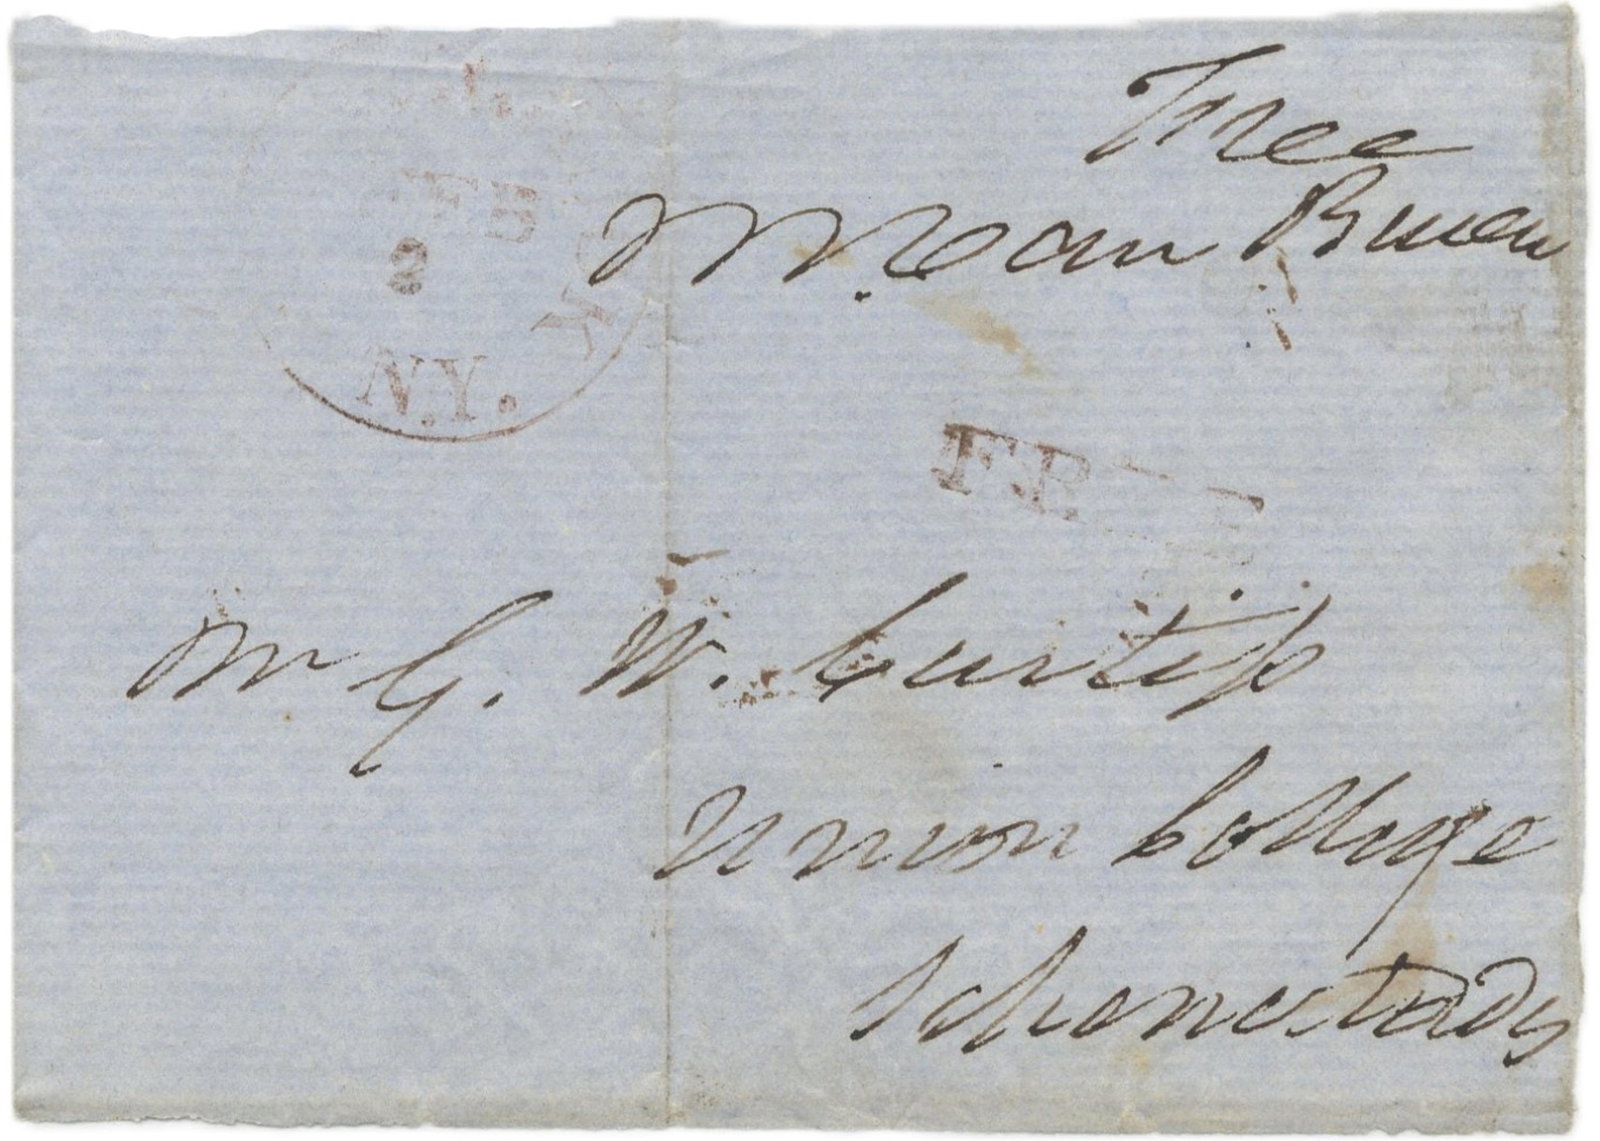 Free
FEB
M. Van Buren
2
K
N.Y.
FREE
Mr G. W. Curtiss
Union College
Schenectady